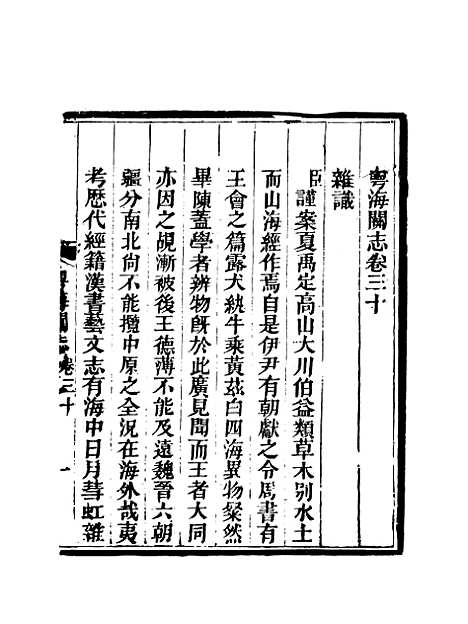 粤海關志卷三十
雜識
臣謹案夏禹定高山大川伯益類草木別水土
而山海經作焉自是伊尹有朝獻之令周書有
王會之篇露犬紈牛乘黄茲白四海異物粲然
畢陳蓋學者辨物旣於此廣見聞而王者大同
亦因之覘漸被後王德薄不能及遠魏晉六朝
疆分南北尙不能攬中原之全況在海外哉夷
考歴代經籍漢書藝文志有海中日月彗虹雜
粤海關志卷三十
一